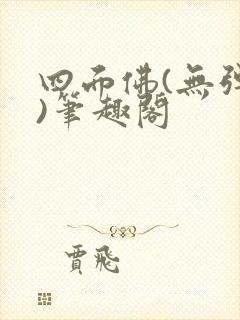 四面佛(無
)筆趣閣
賈飛